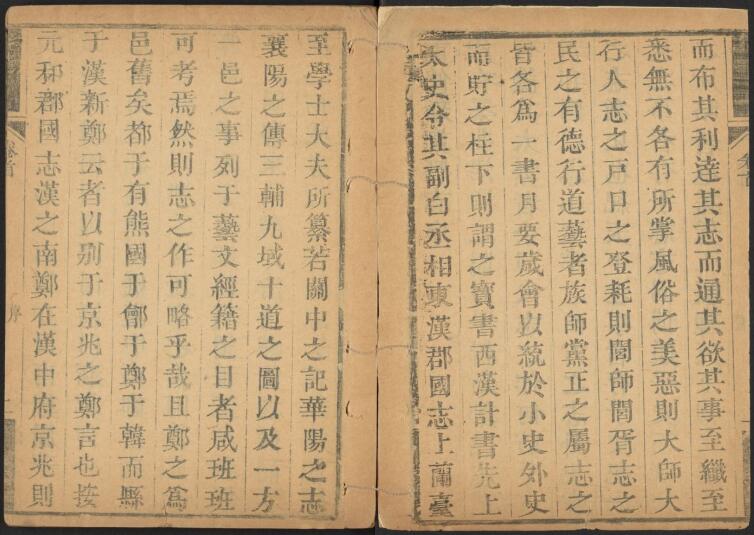 而布其利逹其志而通其欲其事至纖至
悉無不各有所掌風俗之美惡則大師大
行人志之戸口之登耗則閭師閭胥志之
民之有德行道藝者族師黨正之屬志之
皆各爲一書月要歲會以統於小史外史
而貯之柱下則謂之寳書西漢計書先上
太史令其副白丞相東漢郡國志上蘭臺
至學士大夫所纂若關中之記華陽之志
襄陽之傳三輔九域十道之圖以及一方
一邑之事列于藝文經籍之目者咸班班
可考焉然則志之作可略乎哉且鄭之爲
邑舊矣都于有熊國于鄶于鄭于韓而縣
于漢新鄭云者以别于京兆之鄭言也按
元和郡國志漢之南鄭在漢中府京兆則
序